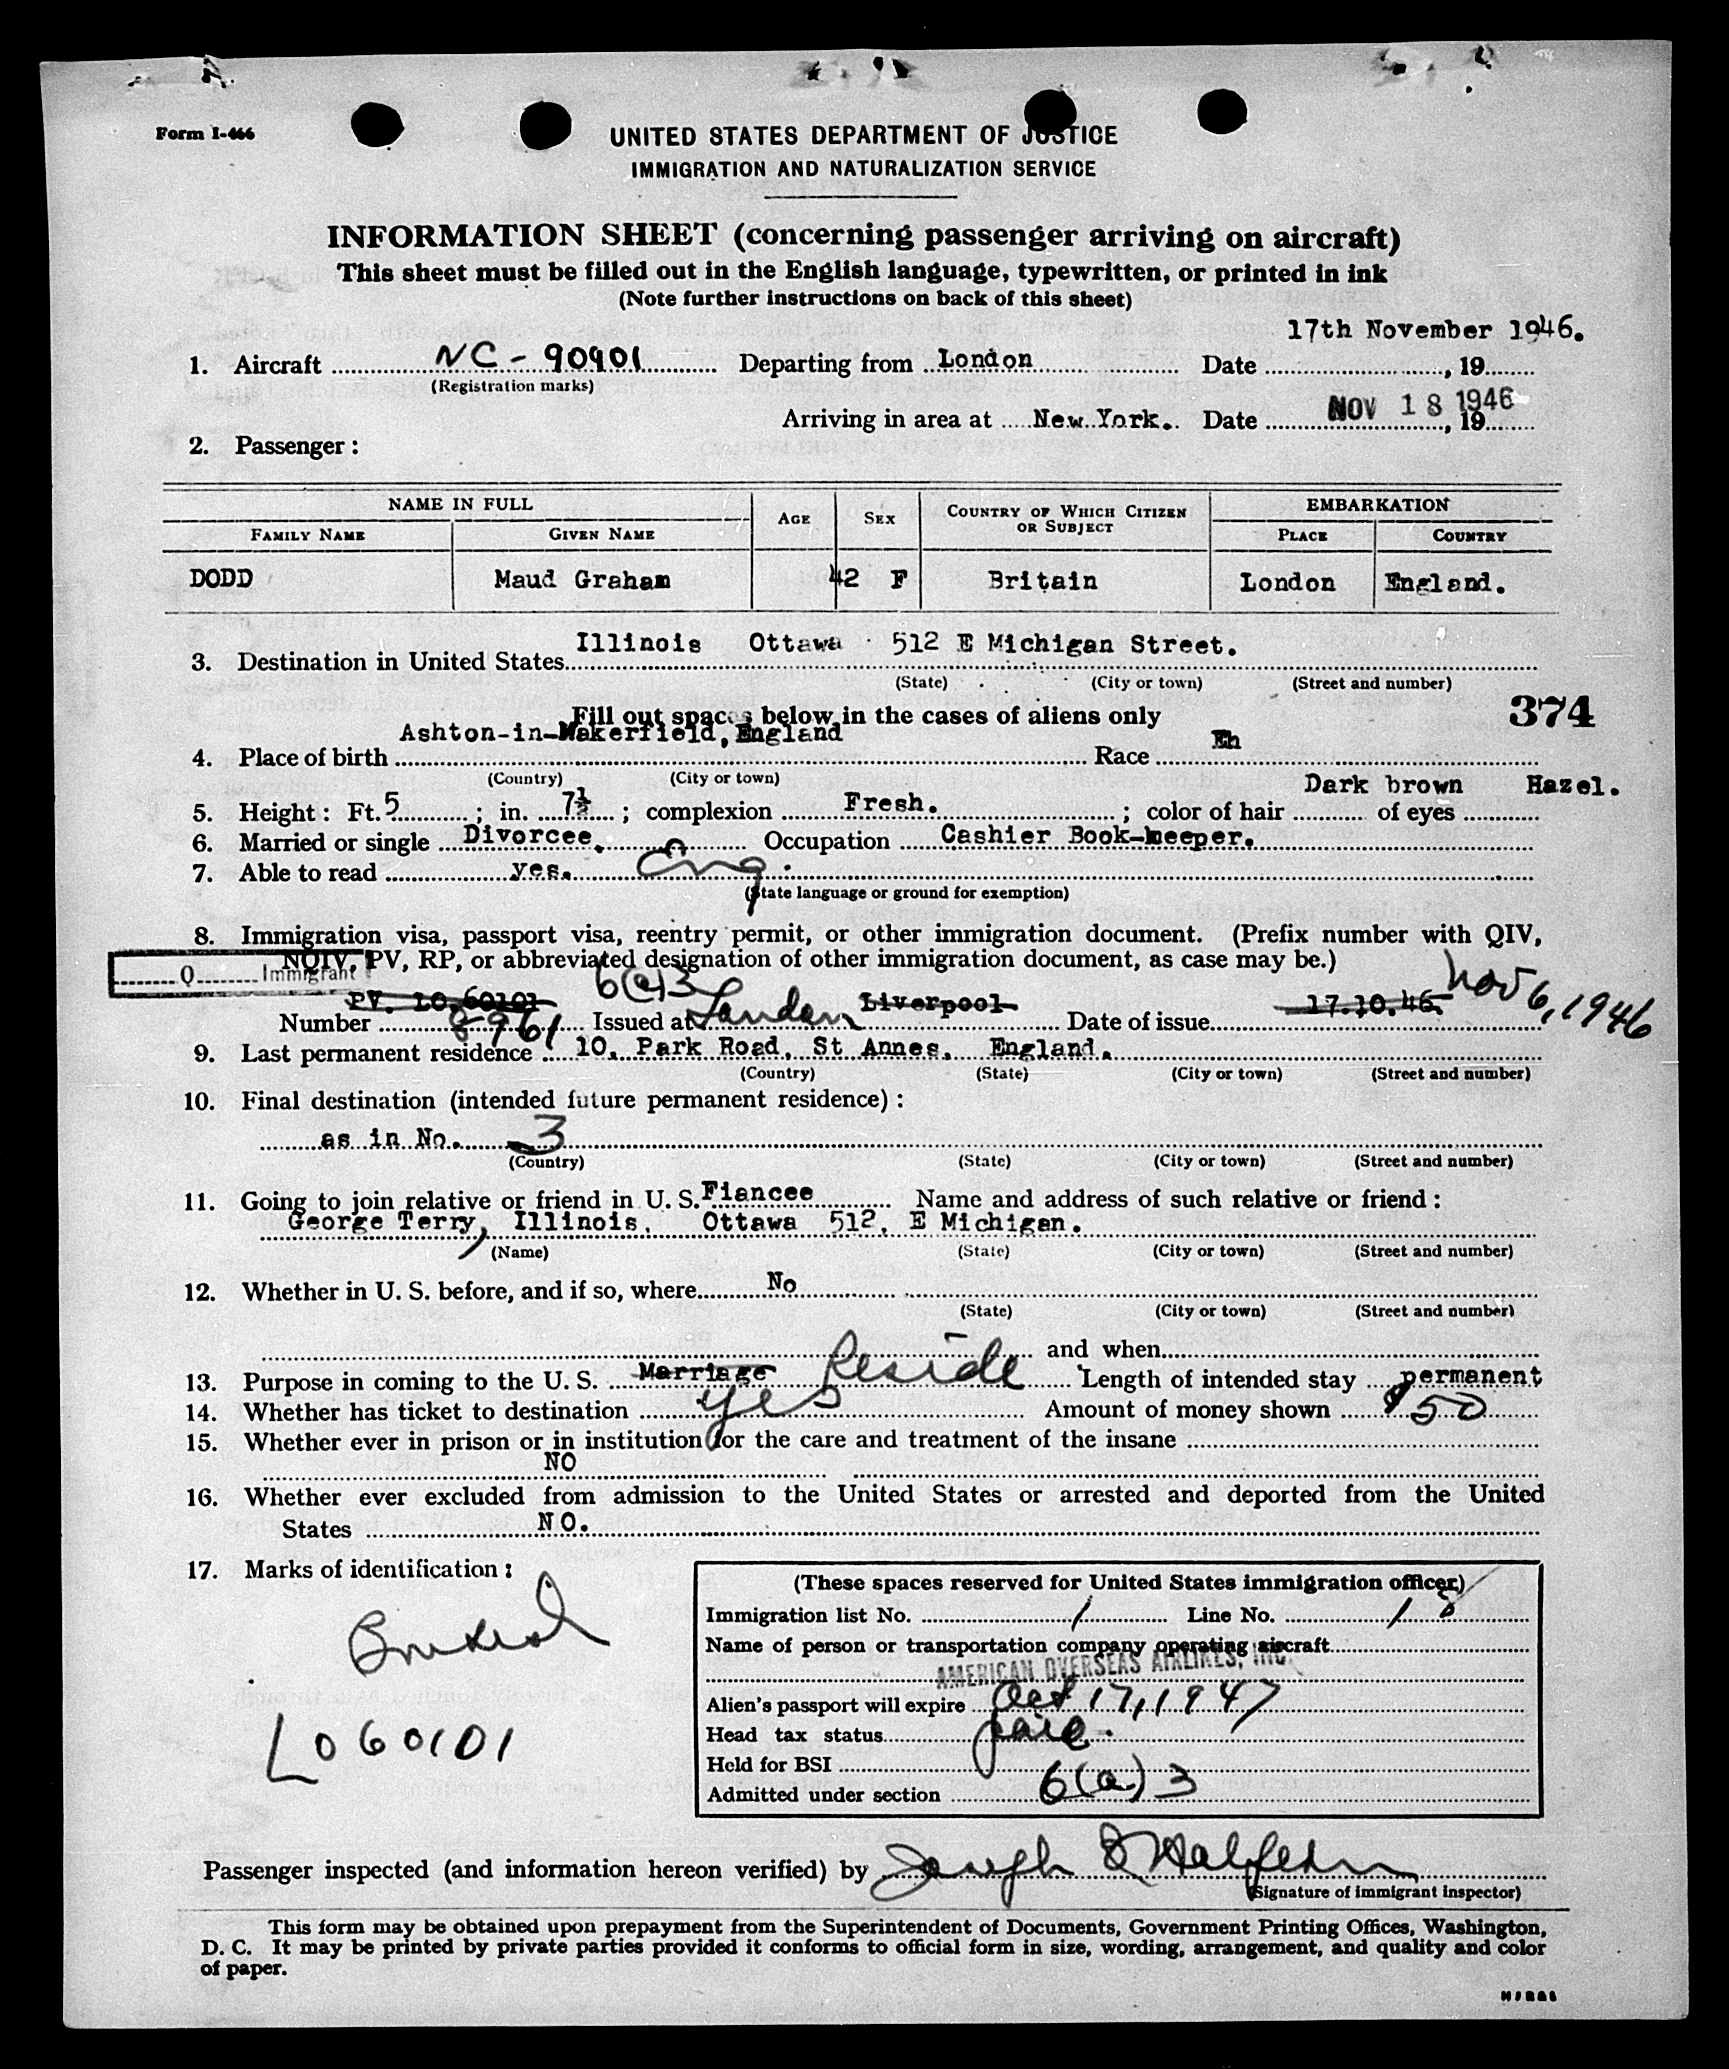 Form I-466
UNITED STATES DEPARTMENT OF JUSTICE
IMMIGRATION AND NATURALIZATION SERVICE
INFORMATION SHEET (concerning passenger arriving on aircraft)
This sheet must be filled out in the English language, typewritten, or printed in ink
(Note further instructions on back of this sheet)
17th November 1946.
1. Aircraft NC-90901 Departing from London Date , 19
(Registration marks)
Arriving in area at New York. Date NOV 18 1946 , 19
2. Passenger:
NAME IN FULL AGE SEX COUNTRY OF WHICH CITIZEN OR SUBJECT EMBARKATION
FAMILY NAME GIVEN NAME PLACE COUNTRY
DODD Maud Graham 42 F Britain London England.
3. Destination in United States Illinois Ottawa 512 E Michigan Street.
(State) (City or town) (Street and number)
374
Fill out spaces below in the cases of aliens only
4. Place of birth Ashton-in-Makerfield, England Race Eh
(Country) (City or town)
5. Height: Ft. 5 ; in. 7½ ; complexion Fresh. ; color of hair Dark brown of eyes Hazel.
6. Married or single Divorcee. Occupation Cashier Book-keeper.
7. Able to read yes. Eng.
(State language or ground for exemption)
8. Immigration visa, passport visa, reentry permit, or other immigration document. (Prefix number with QIV,
NQIV, PV, RP, or abbreviated designation of other immigration document, as case may be.)
Q Immigrant
PV. LO.60101 6(a)3 Liverpool 17.10.46. Nov 6, 1946
Number 8961 Issued at London Date of issue
9. Last permanent residence 10, Park Road, St Annes, England.
(Country) (State) (City or town) (Street and number)
10. Final destination (intended future permanent residence):
as in No. 3
(Country) (State) (City or town) (Street and number)
11. Going to join relative or friend in U. S. Fiancee Name and address of such relative or friend:
George Terry, Illinois, Ottawa 512, E Michigan.
(Name) (State) (City or town) (Street and number)
12. Whether in U. S. before, and if so, where No
(State) (City or town) (Street and number)
and when
13. Purpose in coming to the U. S. Marriage Reside Length of intended stay permanent
14. Whether has ticket to destination yes Amount of money shown $50
15. Whether ever in prison or in institution for the care and treatment of the insane
NO
16. Whether ever excluded from admission to the United States or arrested and deported from the United
States NO.
17. Marks of identification:
L060101
(These spaces reserved for United States immigration officer)
Immigration list No. 1 Line No. 18
Name of person or transportation company operating aircraft
AMERICAN OVERSEAS AIRLINES, INC.
Alien's passport will expire Oct 17, 1947
Head tax status paid.
Held for BSI
Admitted under section 6(a)3
Passenger inspected (and information hereon verified) by Joseph
(Signature of immigrant inspector)
This form may be obtained upon prepayment from the Superintendent of Documents, Government Printing Offices, Washington,
D. C. It may be printed by private parties provided it conforms to official form in size, wording, arrangement, and quality and color
of paper.